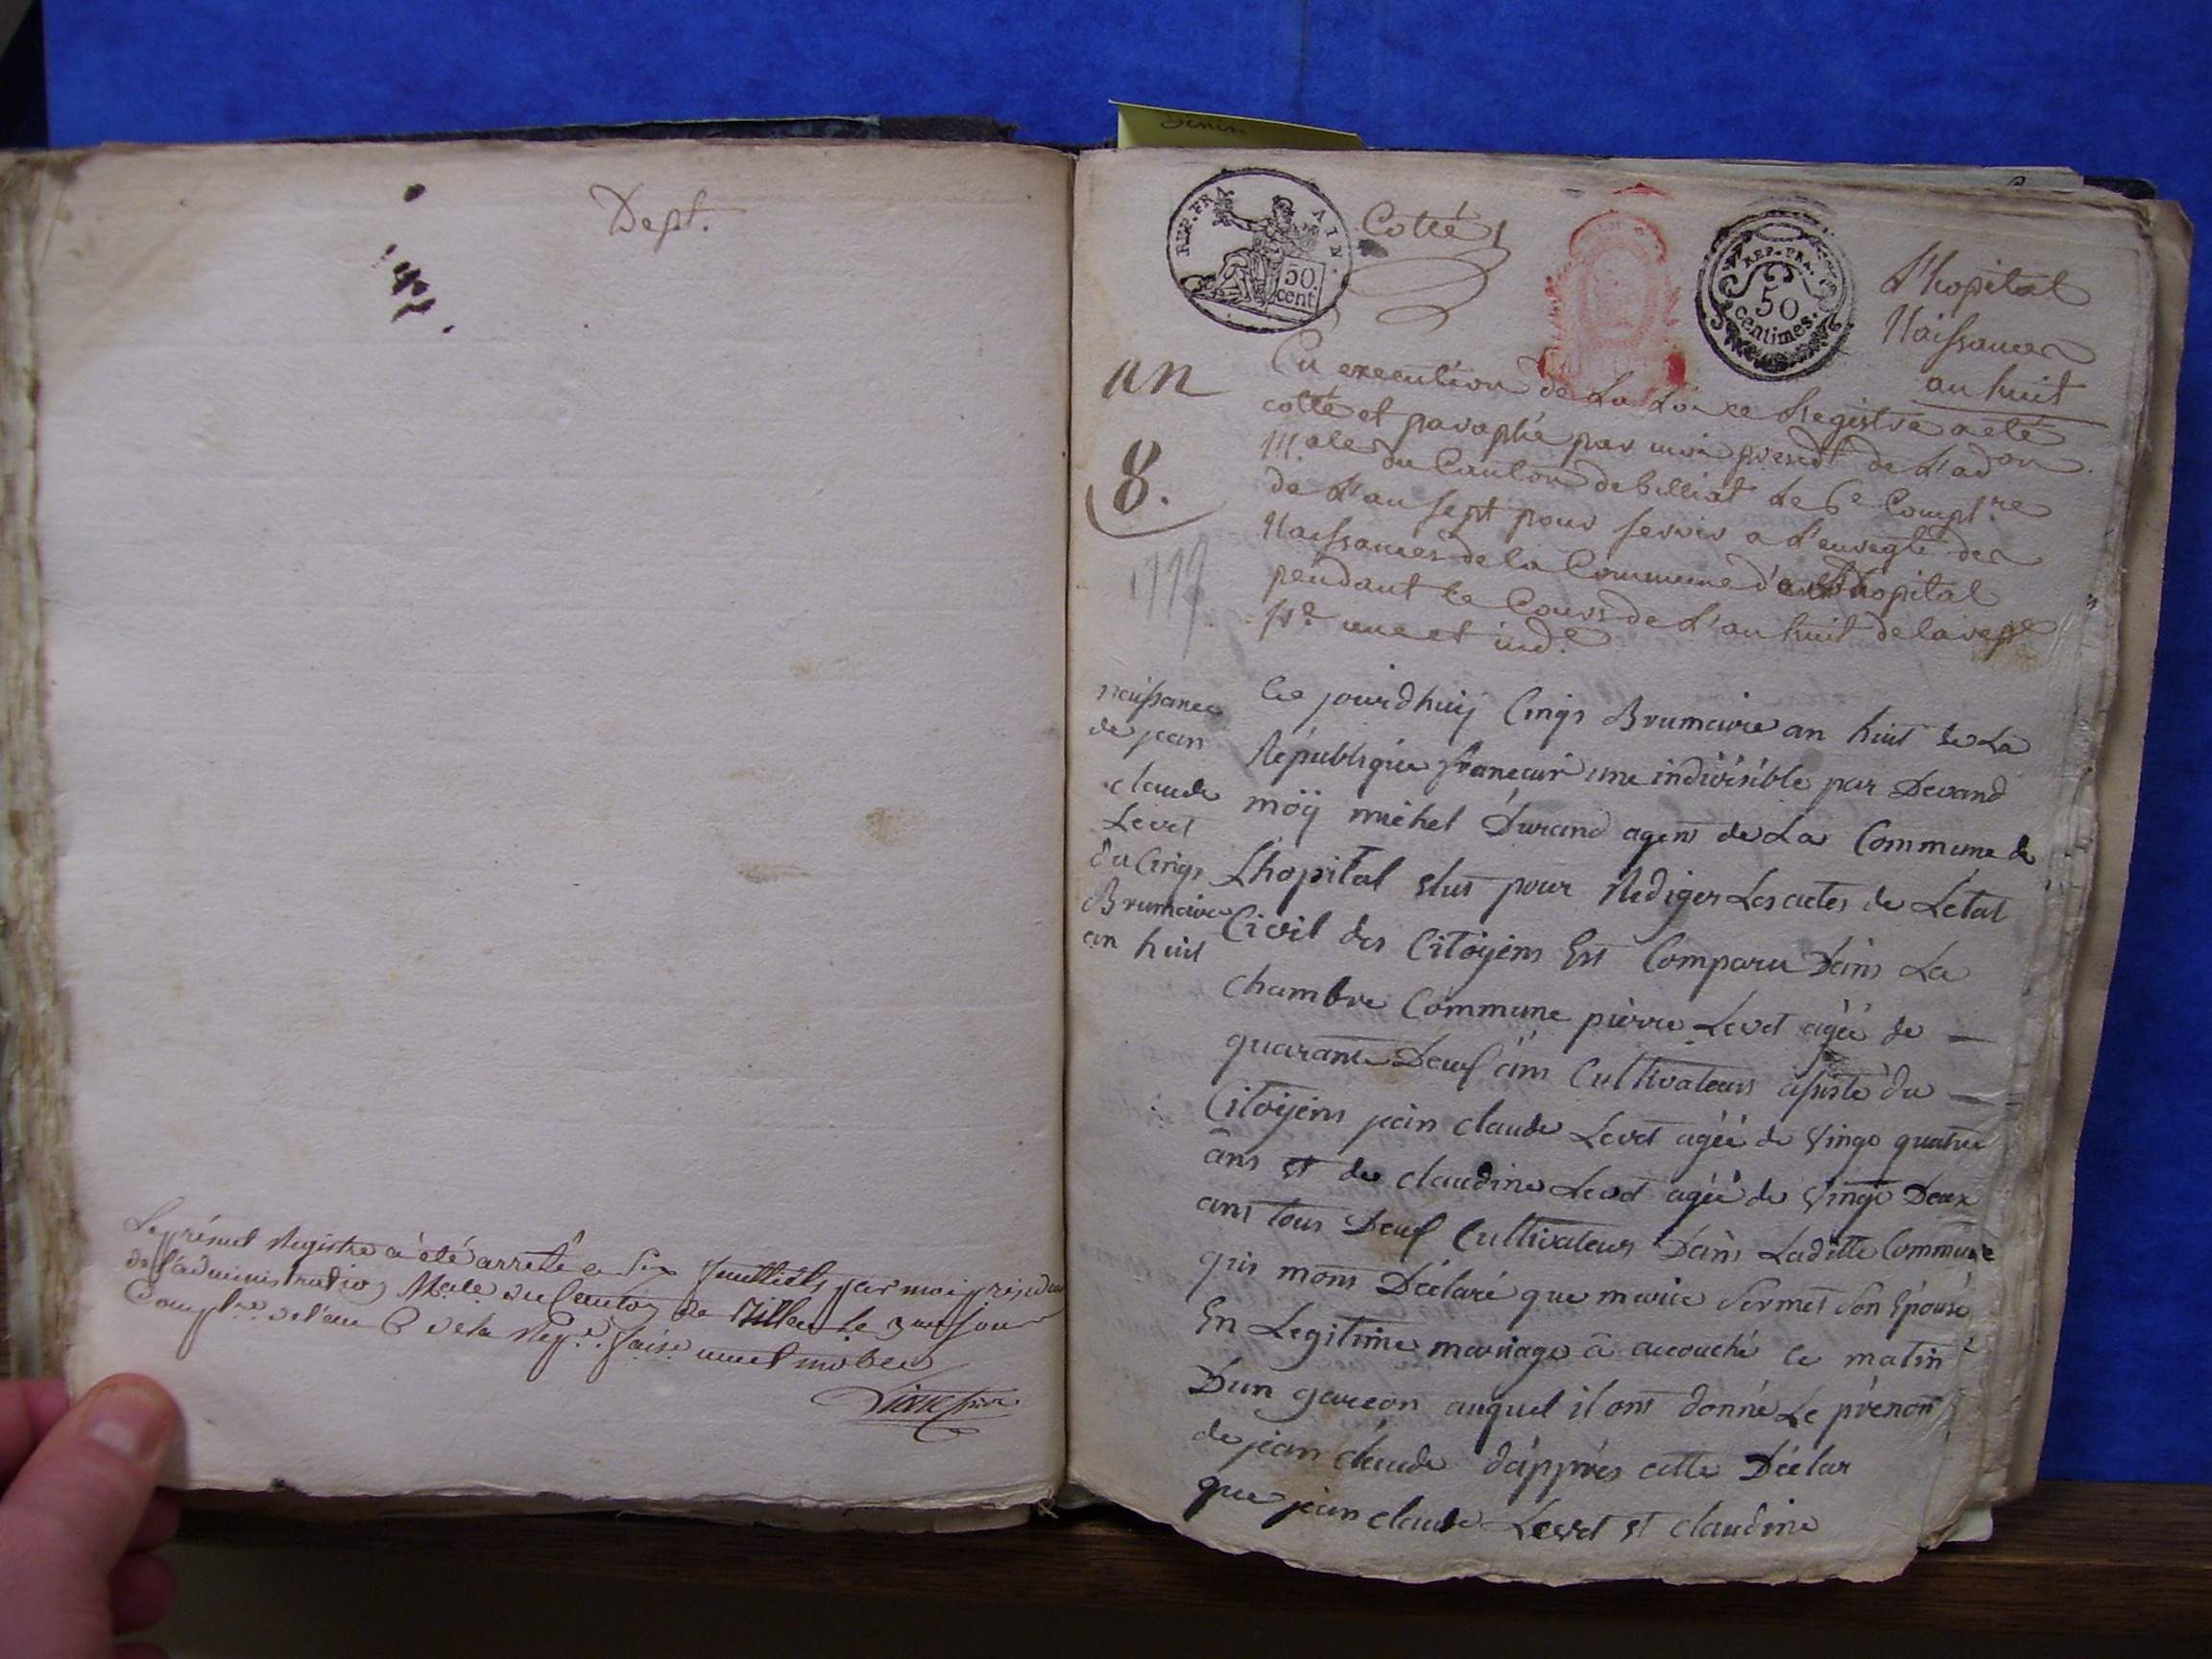 Dept.
Le présent Registre a été arrêté a six feuillets par moi président
de l'administration Male du Canton de Billiat le 3me jour
Comple de l'an 6 de la Repe. faise une et
Denin
REP. FRA
AIN.
50
cent
Cotté 1
REP. FRA.
50
centimes.
L'hopital
Naissances
an huit
an
8.
1799
En execution de La Loi ce Registre a eté
cotté et paraphé par moi presdt de L'adon.
M.ale du Canton de billiat Le 6e Complre
de L'an sept pour servir a L'enregté des
Naissances de la Commune d' Lhopital
pendant le Cours de L'an huit de la repe
fse une et inde
naissance
de jean
claude
Levet
du Cinqs
Brumaire
an huit
Ce jourdhuij Cinqs Brumaire an huit de La
République francair une indivisible par Devand
moÿ michel Durand agent de La Commune de
Lhopital elus pour Rediger Les actes de Létat
Civil des Citoÿens Est Comparu Dans La
chambre Commune pierre Levet agéé de —
quarante Deuf ans Cultivateurs assisté du —
Citoÿens jean claude Levet agéé de vingt quatre
ans et de claudine Levet agéé de vingt Deux
ans tous Deuf Cultivateurs Dans Laditte Commune
qui mont Déclaré que marie Sermet Son Epouse
En Legitime mariage a accouché ce matin
Dun garcon auquel il ont donné Le prénon
de jean claude dápprés cette Déclar
que jean claude Levet et claudine